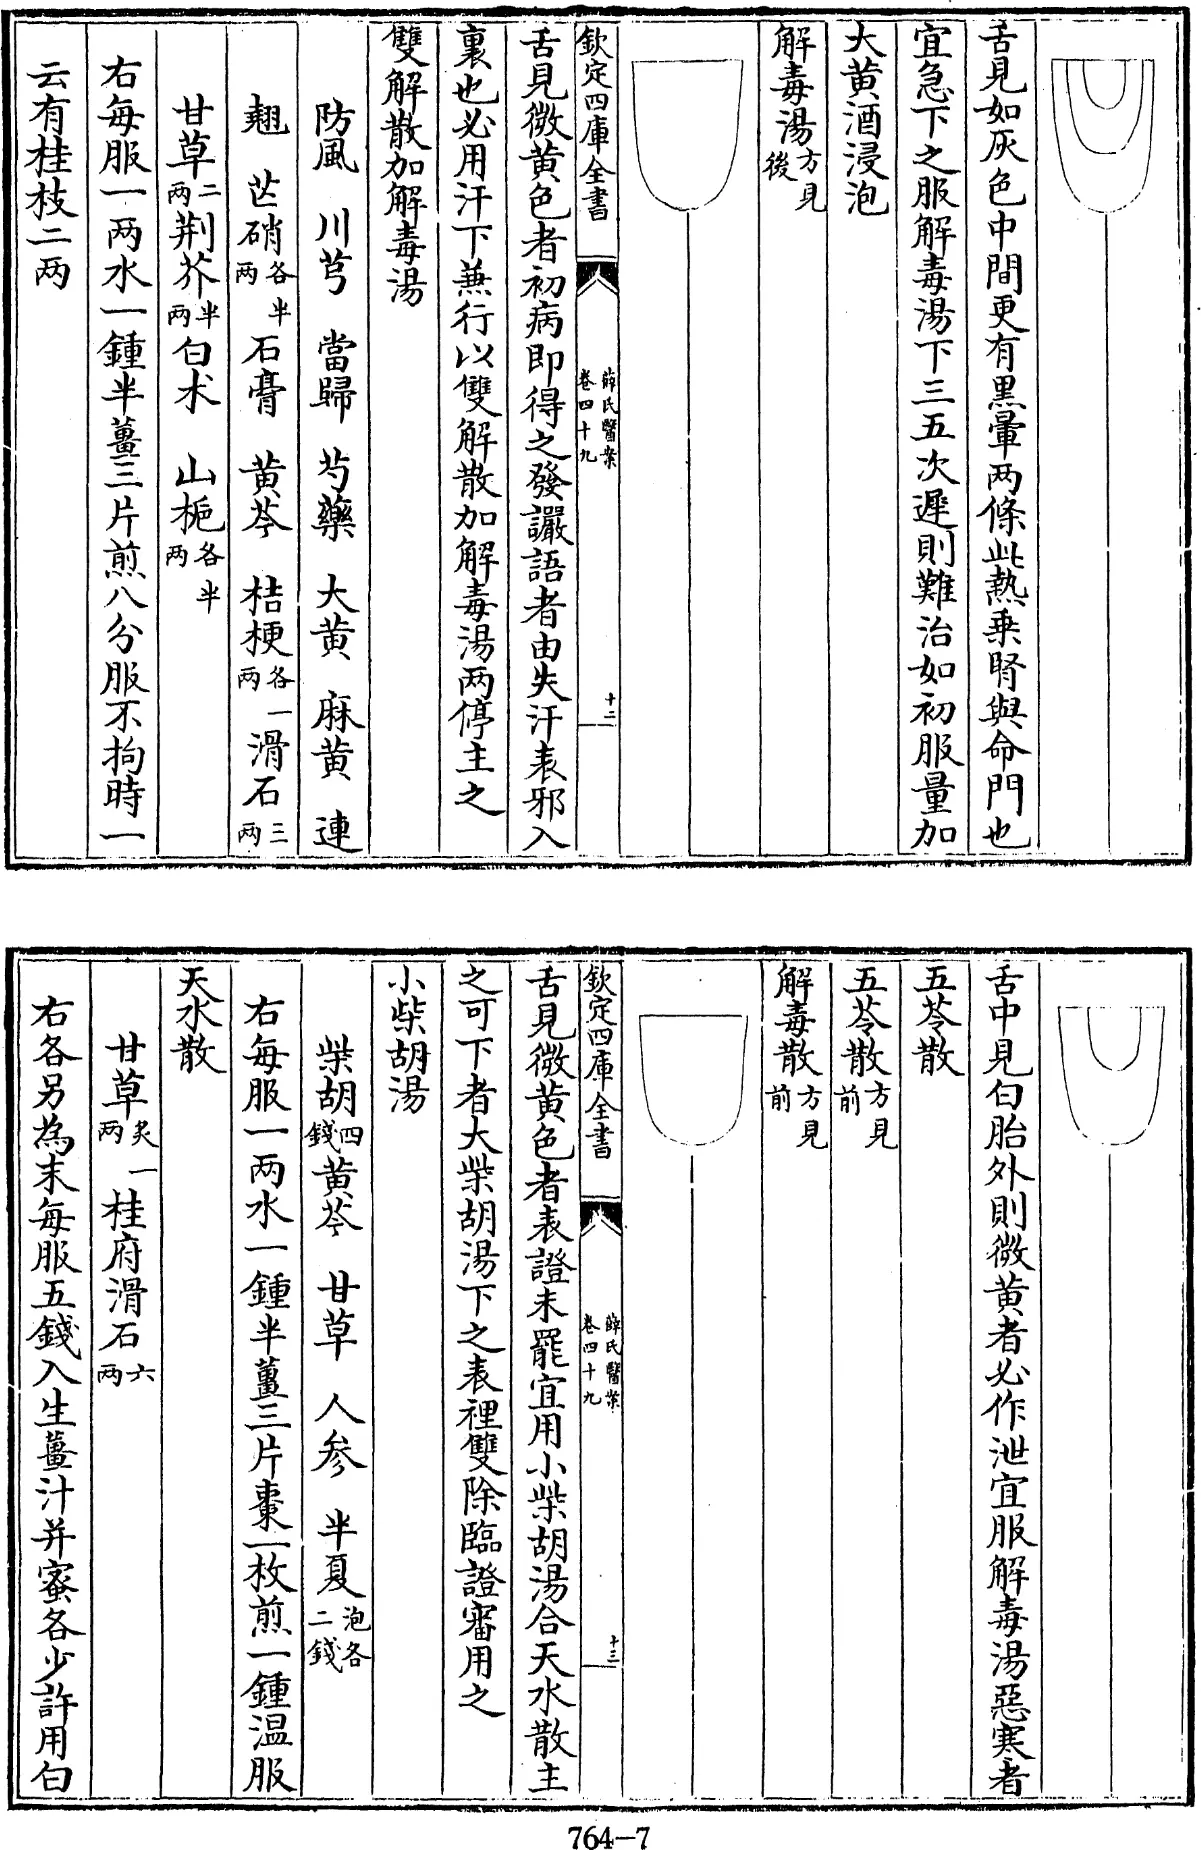 舌見如灰色中間更有黑暈两條此熱乗腎與命門也
宜急下之服解毒湯下三五次遲則難治如初服量加
大黄酒浸泡
解毒湯方見後
欽定四庫全書
薛氏醫案
卷四十九
十二
舌見微黄色者初病即得之發讝語者由失汗表邪入
裏也必用汗下兼行以雙解散加解毒湯两停主之
雙解散加解毒湯
防風 川芎 當歸 芍藥 大黄 麻黄 連
翹 芒硝各半两 石膏 黄芩 桔梗各一两 滑石三两
甘草二两 荆芥半两 白术 山梔各半两
右每服一两水一鍾半薑三片煎八分服不拘時一
云有桂枝二两
舌中見白胎外則微黄者必作泄宜服解毒湯惡寒者
五苓散
五苓散方見前
解毒散方見前
欽定四庫全書
薛氏醫案
卷四十九
十三
舌見微黄色者表證未罷宜用小柴胡湯合天水散主
之可下者大柴胡湯下之表裡雙除臨證審用之
小柴胡湯
柴胡四錢 黄芩 甘草 人参 半夏泡各二錢
右每服一两水一鍾半薑三片棗一枚煎一鍾温服
天水散
甘草炙一两 桂府滑石六两
右各另為末每服五錢入生薑汁并蜜各少許用白
764-7